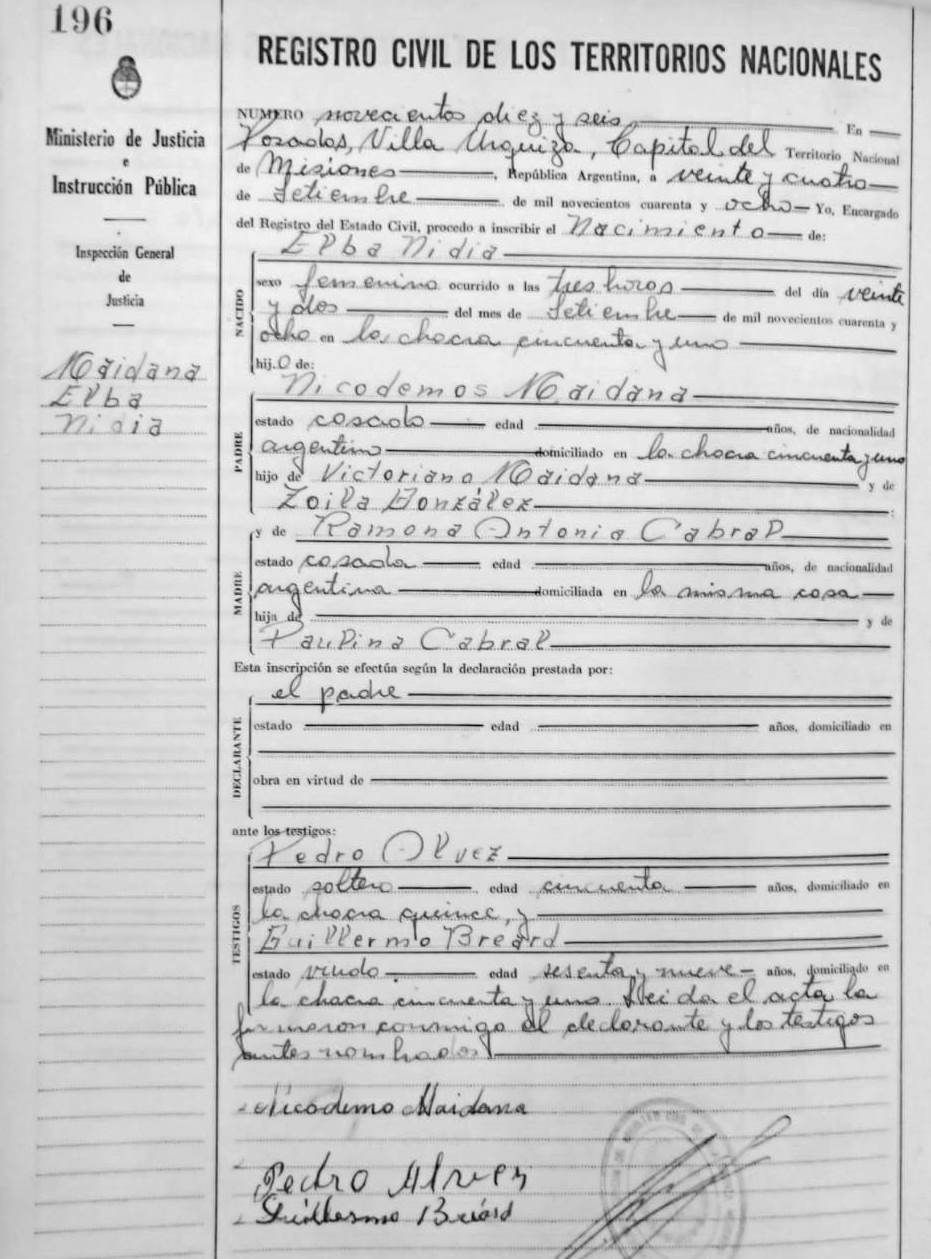 196
REGISTRO CIVIL DE LOS TERRITORIOS NACIONALES
Ministerio de Justicia
e
Instrucción Pública
Inspección General
de
Justicia
Maidana
Elba
Nidia
NUMERO novecientos diez y seis En
Posadas, Villa Urquiza, Capital del Territorio Nacional
de Misiones, República Argentina, a veinte y cuatro
de Setiembre de mil novecientos cuarenta y ocho Yo, Encargado
del Registro del Estado Civil, procedo a inscribir el Nacimiento de:
NACIDO
Elba Nidia
sexo femenino ocurrido a las tres horas del día veinte
y dos del mes de Setiembre de mil novecientos cuarenta y
ocho en la chacra cincuenta y uno
hij.a de:
PADRE
Nicodemos Maidana
estado casado edad años, de nacionalidad
argentino domiciliado en la chacra cincuenta y uno
hijo de Victoriano Maidana y de
Zoila González :
MADRE
y de Ramona Antonia Cabral
estado casada edad años, de nacionalidad
argentina domiciliada en la misma casa
hija de y de
Paulina Cabral
Esta inscripción se efectúa según la declaración prestada por:
DECLARANTE
el padre
estado edad años, domiciliado en
obra en virtud de
ante los testigos:
TESTIGOS
Pedro Alvez
estado soltero edad cincuenta años, domiciliado en
la chacra quince, y
Guillermo Breard
estado viudo edad sesenta y nueve años, domiciliado en
la chacra cincuenta y uno. Leida el acta la
firmaron conmigo el declarante y los testigos
antes nombrados
Nicodemo Maidana
Pedro Alves
Guillermo Breard